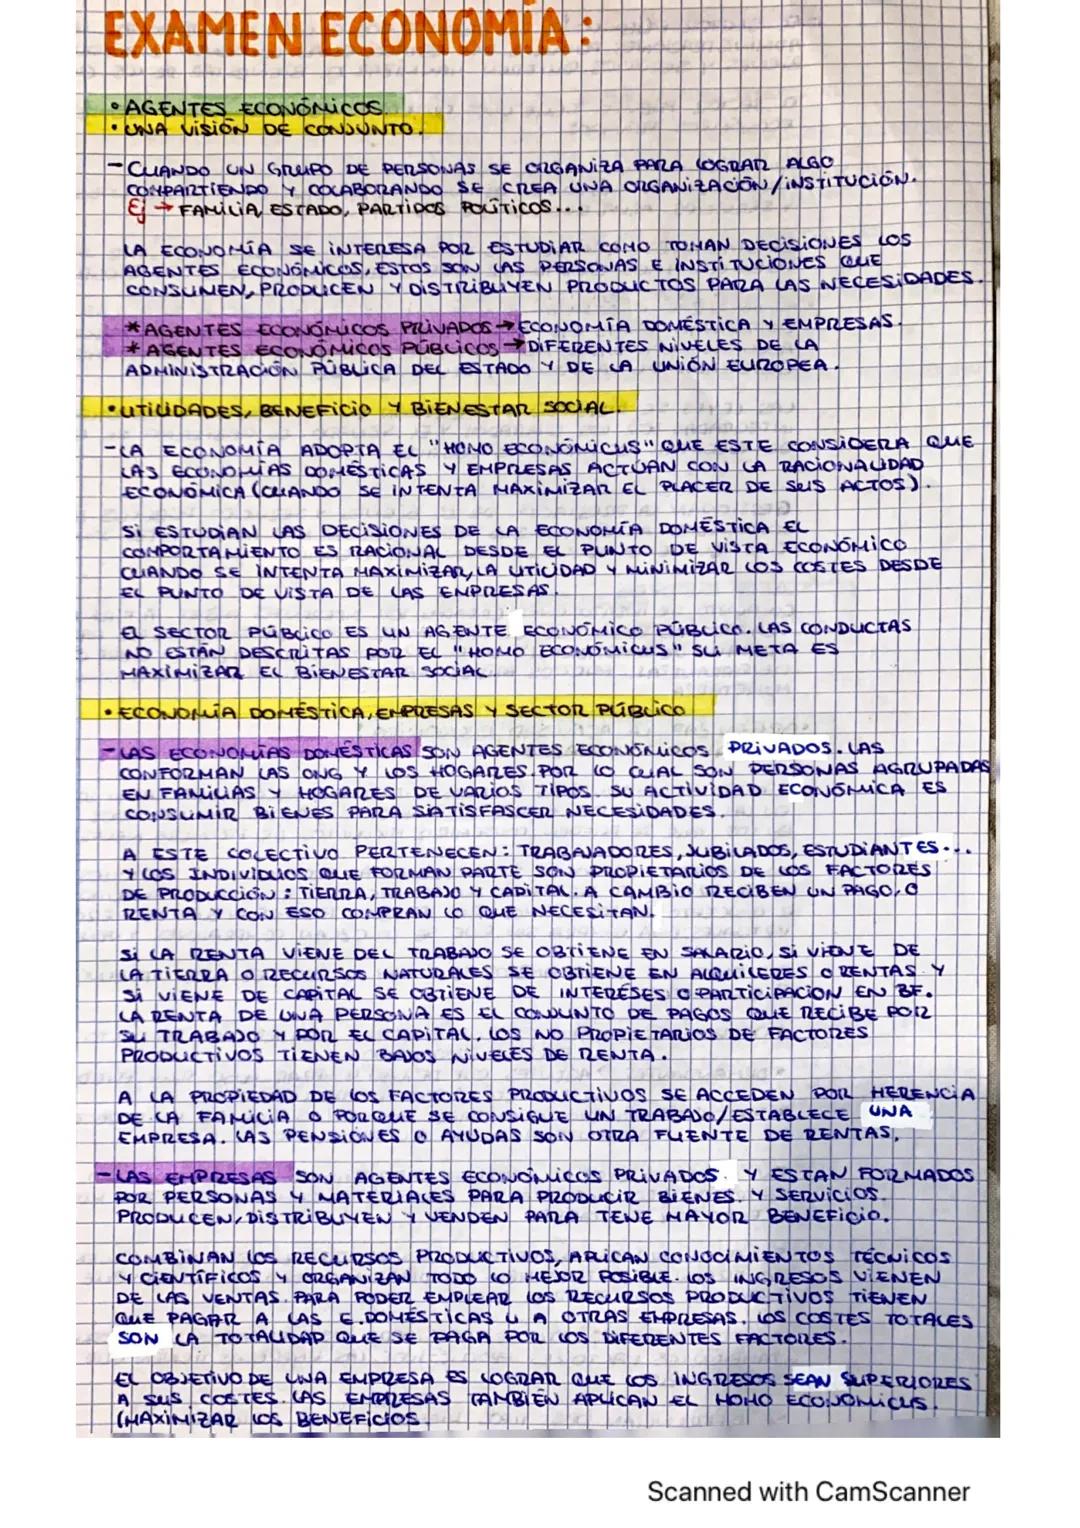 EXAMEN ECONOMÍA:
• AGENTES ECONÓMICOS.
• UNA VISIÓN DE CONJUNTO.
- CUANDO UN GRUPO DE PERSONAS SE ORGANIZA PARA LOGRAR ALGO
COMPARTIENDO Y COLABORANDO SE CREA UNA ORGANIZACIÓN/INSTITUCIÓN.
Ej → FAMILIA, ESTADO, PARTIDOS POLÍTICOS...
LA ECONOMÍA SE INTERESA POR ESTUDIAR COMO TOMAN DECISIONES LOS
AGENTES ECONÓMICOS, ESTOS SON LAS PERSONAS E INSTITUCIONES QUE
CONSUMEN, PRODUCEN Y DISTRIBUYEN PRODUCTOS PARA LAS NECESIDADES.
* AGENTES ECONÓMICOS PRIVADOS → ECONOMÍA DOMÉSTICA Y EMPRESAS.
* AGENTES ECONÓMICOS PÚBLICOS → DIFERENTES NIVELES DE LA
ADMINISTRACIÓN PÚBLICA DEL ESTADO Y DE LA UNIÓN EUROPEA.
• UTILIDADES, BENEFICIO Y BIENESTAR SOCIAL.
- LA ECONOMÍA ADOPTA EL "HOMO ECONÓMICUS" QUE ESTE CONSIDERA QUE
LAS ECONOMÍAS DOMÉSTICAS Y EMPRESAS ACTÚAN CON LA RACIONALIDAD
ECONÓMICA (CUANDO SE INTENTA MAXIMIZAR EL PLACER DE SUS ACTOS).
SI ESTUDIAN LAS DECISIONES DE LA ECONOMÍA DOMÉSTICA EL
COMPORTAMIENTO ES RACIONAL DESDE EL PUNTO DE VISTA ECONÓMICO
CUANDO SE INTENTA MAXIMIZAR, LA UTILIDAD Y MINIMIZAR LOS COSTES DESDE
EL PUNTO DE VISTA DE LAS EMPRESAS.
EL SECTOR PÚBLICO ES UN AGENTE ECONÓMICO PÚBLICO. LAS CONDUCTAS
NO ESTÁN DESCRITAS POR EL "HOMO ECONÓMICUS" SU META ES
MAXIMIZAR EL BIENESTAR SOCIAL.
• ECONOMÍA DOMÉSTICA, EMPRESAS Y SECTOR PÚBLICO
- LAS ECONOMÍAS DOMÉSTICAS SON AGENTES ECONÓMICOS PRIVADOS. LAS
CONFORMAN LAS ONG Y LOS HOGARES. POR LO CUAL SON PERSONAS AGRUPADAS
EN FAMILIAS Y HOGARES DE VARIOS TIPOS. SU ACTIVIDAD ECONÓMICA ES
CONSUMIR BIENES PARA SIATISFASCER NECESIDADES.
A ESTE COLECTIVO PERTENECEN: TRABAJADORES, JUBILADOS, ESTUDIANTES...
Y LOS INDIVIDUOS QUE FORMAN PARTE SON PROPIETARIOS DE LOS FACTORES
DE PRODUCCIÓN: TIERRA, TRABAJO Y CAPITAL. A CAMBIO RECIBEN UN PAGO, O
RENTA Y CON ESO COMPRAN LO QUE NECESITAN.
SI LA RENTA VIENE DEL TRABAJO SE OBTIENE EN SALARIO, SI VIENE DE
LA TIERRA O RECURSOS NATURALES SE OBTIENE EN ALQUILERES O RENTAS Y
SI VIENE DE CAPITAL SE OBTIENE DE INTERESES O PARTICIPACIÓN EN BF.
LA RENTA DE UNA PERSONA ES EL CONJUNTO DE PAGOS QUE RECIBE POR
SU TRABAJO Y POR EL CAPITAL. LOS NO PROPIETARIOS DE FACTORES
PRODUCTIVOS TIENEN BAJOS NIVELES DE RENTA.
A LA PROPIEDAD DE LOS FACTORES PRODUCTIVOS SE ACCEDEN POR HERENCIA
DE LA FAMILIA O PORQUE SE CONSIGUE UN TRABAJO/ESTABLECE UNA
EMPRESA. LAS PENSIONES O AYUDAS SON OTRA FUENTE DE RENTAS.
- LAS EMPRESAS SON AGENTES ECONÓMICOS PRIVADOS. Y ESTAN FORMADOS
POR PERSONAS Y MATERIALES PARA PRODUCIR BIENES. Y SERVICIOS.
PRODUCEN, DISTRIBUYEN Y VENDEN PARA TENE MAYOR BENEFICIO.
COMBINAN LOS RECURSOS PRODUCTIVOS, APLICAN CONOCIMIENTOS TÉCNICOS
Y CIENTÍFICOS Y ORGANIZAN TODO LO MEJOR POSIBLE. LOS INGRESOS VIENEN
DE LAS VENTAS. PARA PODER EMPLEAR LOS RECURSOS PRODUCTIVOS TIENEN
QUE PAGAR A LAS E.DOMÉSTICAS U A OTRAS EMPRESAS. LOS COSTES TOTALES
SON LA TOTALIDAD QUE SE PAGA POR LOS DIFERENTES FACTORES.
EL OBJETIVO DE UNA EMPRESA ES LOGRAR QUE LOS INGRESOS SEAN SUPERIORES
A SUS COSTES. LAS EMPRESAS TAMBIÉN APLICAN EL HOMO ECONOMICUS.
(MAXIMIZAR LOS BENEFICIOS
Scanned with CamScanner